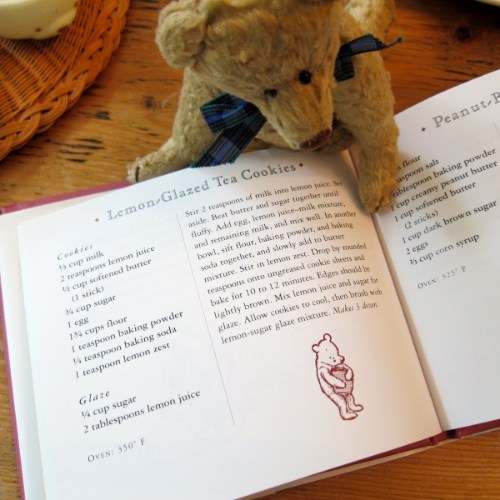 Lemon-Glazed Tea Cookies
Cookies
⅓ cup milk
2 teaspoons lemon juice
½ cup softened butter
(1 stick)
¾ cup sugar
1 egg
1¾ cups flour
1 teaspoon baking powder
¼ teaspoon baking soda
1 teaspoon lemon zest
Glaze
¼ cup sugar
2 tablespoons lemon juice
OVEN: 350° F
Stir 2 teaspoons of milk into lemon juice. Set
aside. Beat butter and sugar together until
fluffy. Add egg, lemon juice–milk mixture,
and remaining milk, and mix well. In another
bowl, sift flour, baking powder, and baking
soda together, and slowly add to butter
mixture. Stir in lemon zest. Drop by rounded
teaspoons onto ungreased cookie sheets and
bake for 10 to 12 minutes. Edges should be
lightly brown. Mix lemon juice and sugar for
glaze. Allow cookies to cool, then brush with
lemon-sugar glaze mixture. Make 3 dozen.
Peanut-B
flour
teaspoon salt
tablespoon baking powder
cup creamy peanut butter
1 cup softened butter
(2 sticks)
1 cup dark brown sugar
2 eggs
⅓ cup corn syrup
OVEN: 325° F